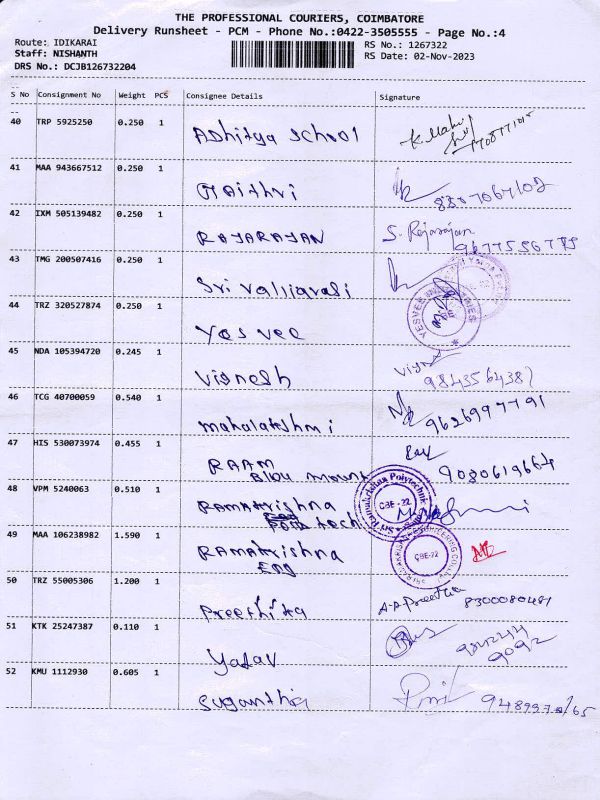 THE PROFESSIONAL COURIERS, COIMBATORE
Delivery Runsheet - PCM - Phone No.:0422-3505555 - Page No.:4
Route: IDIKARAI
RS No.: 1267322
Staff: NISHANTH
RS Date: 02-Nov-2023
DRS No.: DCJB126732204
S No Consignment No Weight PCS Consignee Details Signature
40 TRP 5925250 0.250 1
Adhitya School
41 MAA 943667512 0.250 1
Maithri
42 IXM 505139482 0.250 1
RAJARAJAN S. Rajarajan
43 TMG 200507416 0.250 1
Sri
44 TRZ 320527874 0.250 1
Yes vee
45 NDA 105394720 0.245 1
Vignesh
46 TCG 40700059 0.540 1
mahalakshmi 9626997791
47 HIS 530073974 0.455 1
RAAM
Blou mount 9080619664
48 VPM 5240063 0.510 1
Ramakrishna
tech
Sri Ramakrishna Polytechnic
CBE-22
49 MAA 106238982 1.590 1
Ramakrishna
Eng
CBE-22
50 TRZ 55005306 1.200 1
Preethika 8300080481
51 KTK 25247387 0.110 1
Yadav
52 KMU 1112930 0.605 1
Suganthi